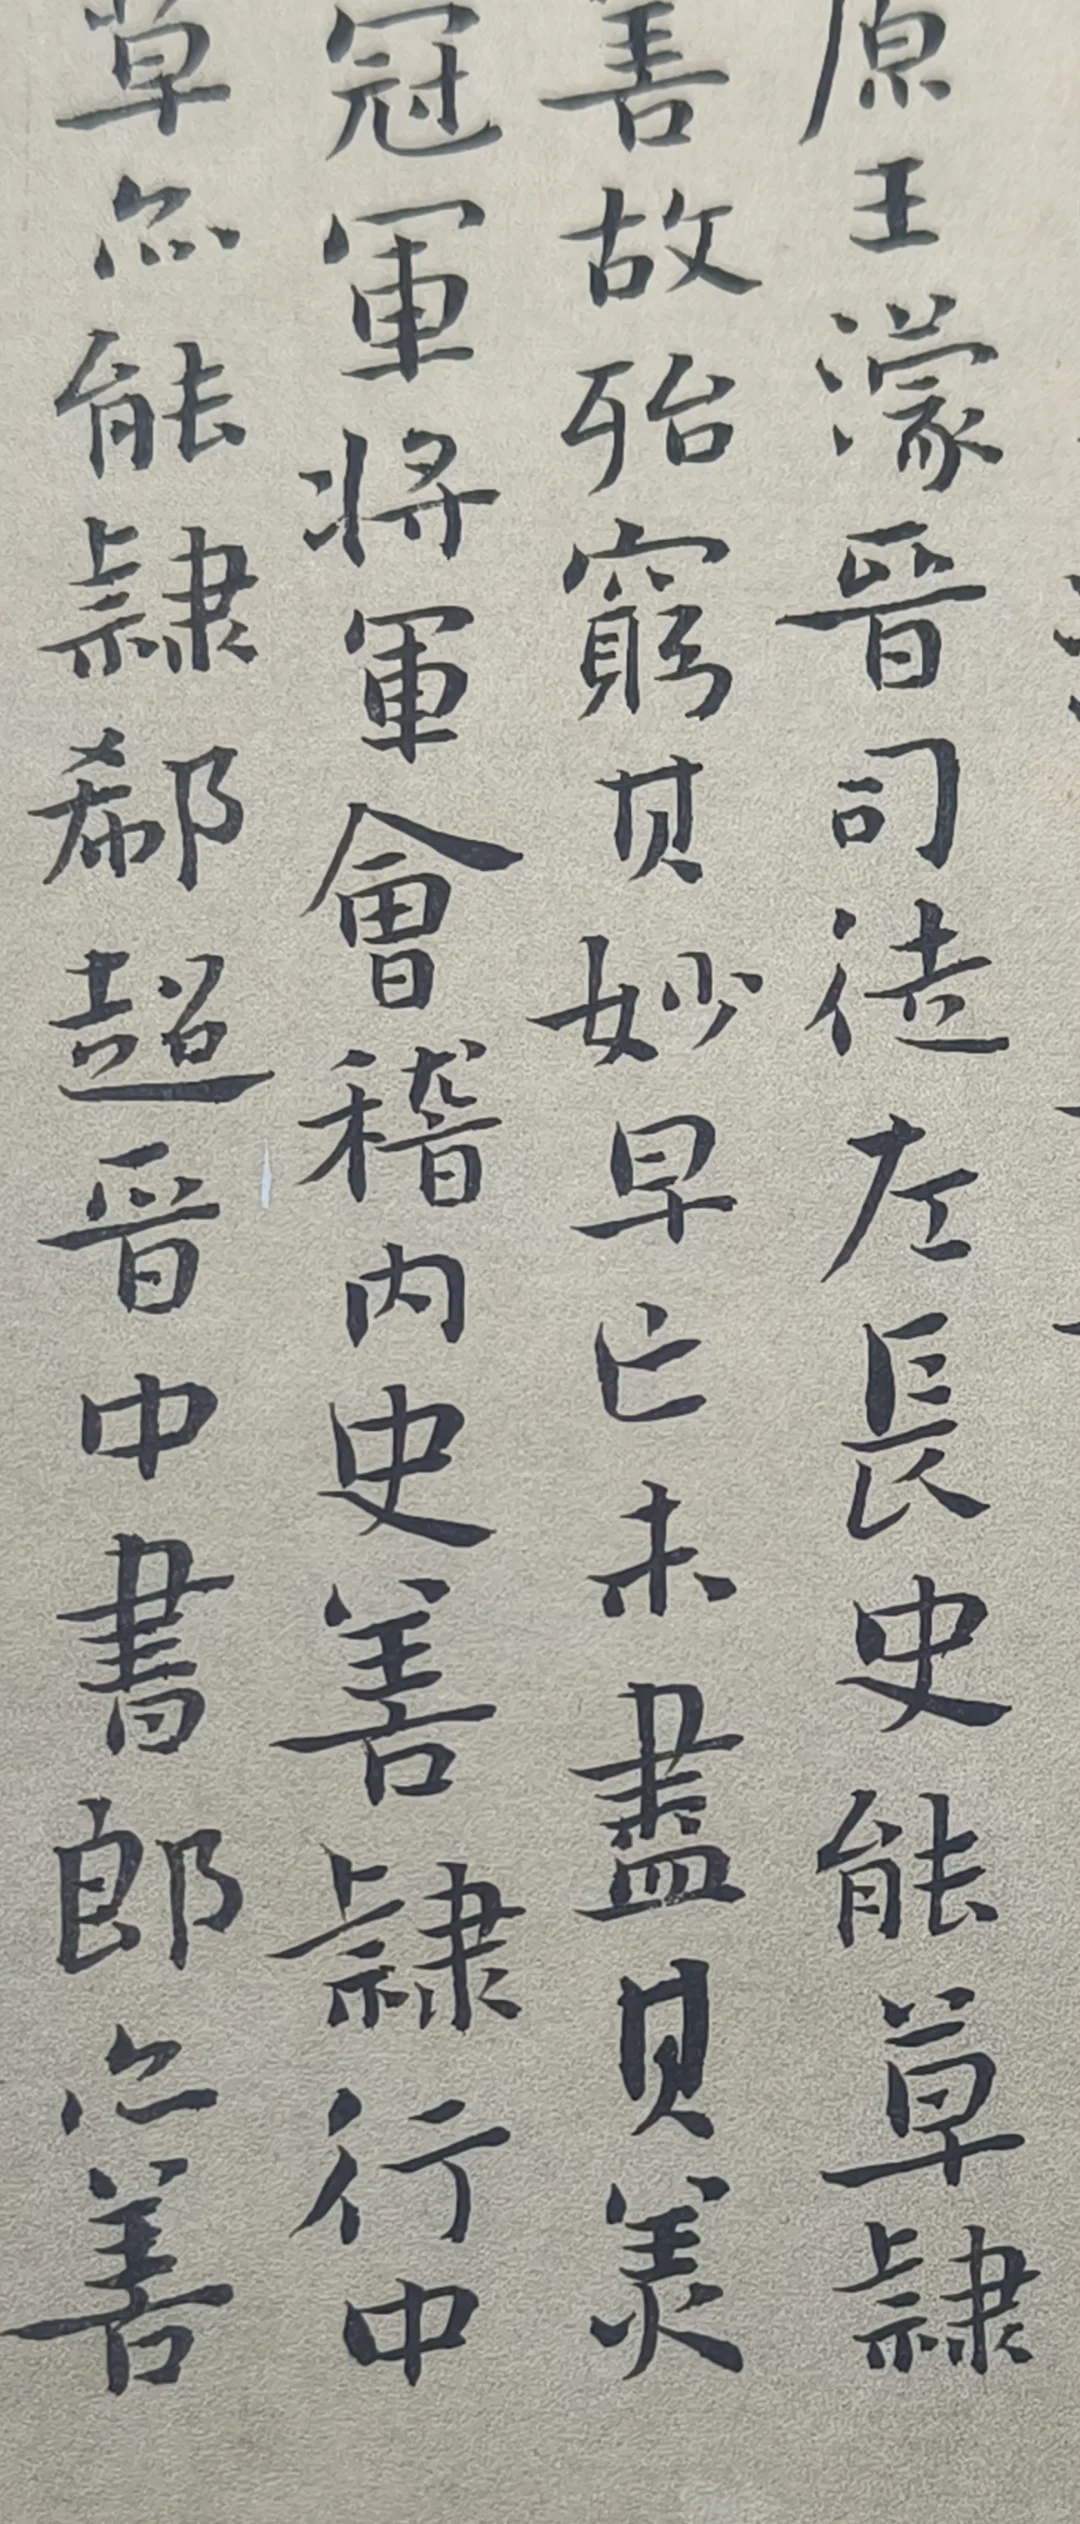 原王濛晉司徒左長史能草隸
善故殆窮其妙早亡未盡其美
冠軍將軍會稽內史善隸行中
草亦能隸郗超晉中書郎亦善